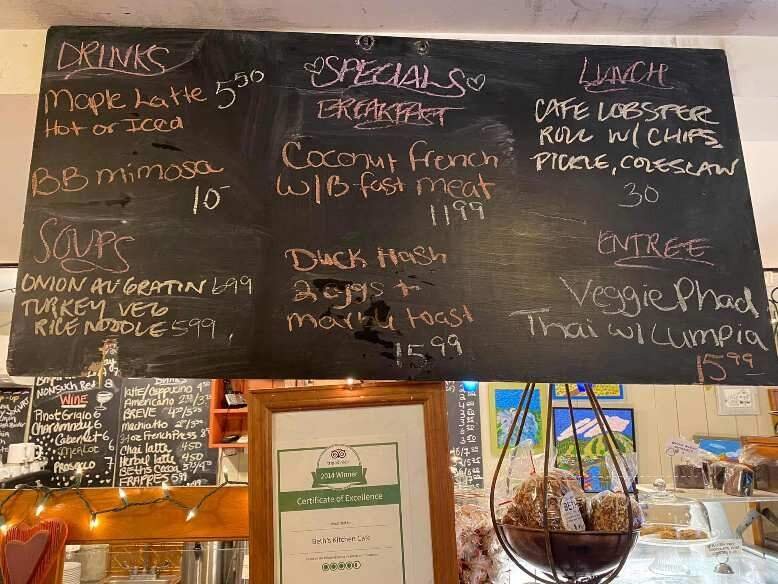 DRINKS
Maple Latte 5.50
Hot or Iced
BB mimosa
10
SOUPS
ONION AU GRATIN 6.99
TURKEY VEG
RICE NOODLE 5.99
SPECIALS
BREAKFAST
Coconut French
w/ B-fast meat
11.99
Duck Hash
2 eggs +
toast
15.99
LUNCH
CAFE LOBSTER
ROLL W/ CHIPS,
PICKLE, COLESLAW
30
ENTREE
Veggie Phad
Thai w/ Lumpia
15.99
NONSUCH Red
WINE
Pinot Grigio 6
Chardonnay 6
Cabernet 6
Merlot
Prosecco 7
DRINKS
Americano
BREVE
Macchiato
French Press
Chai latte 4.50
Herbal latte 4.50
Beth's Cocoa
FRAPPES 5.50
2014 Winner
Certificate of Excellence
Beth's Kitchen Cafe
BETH'S